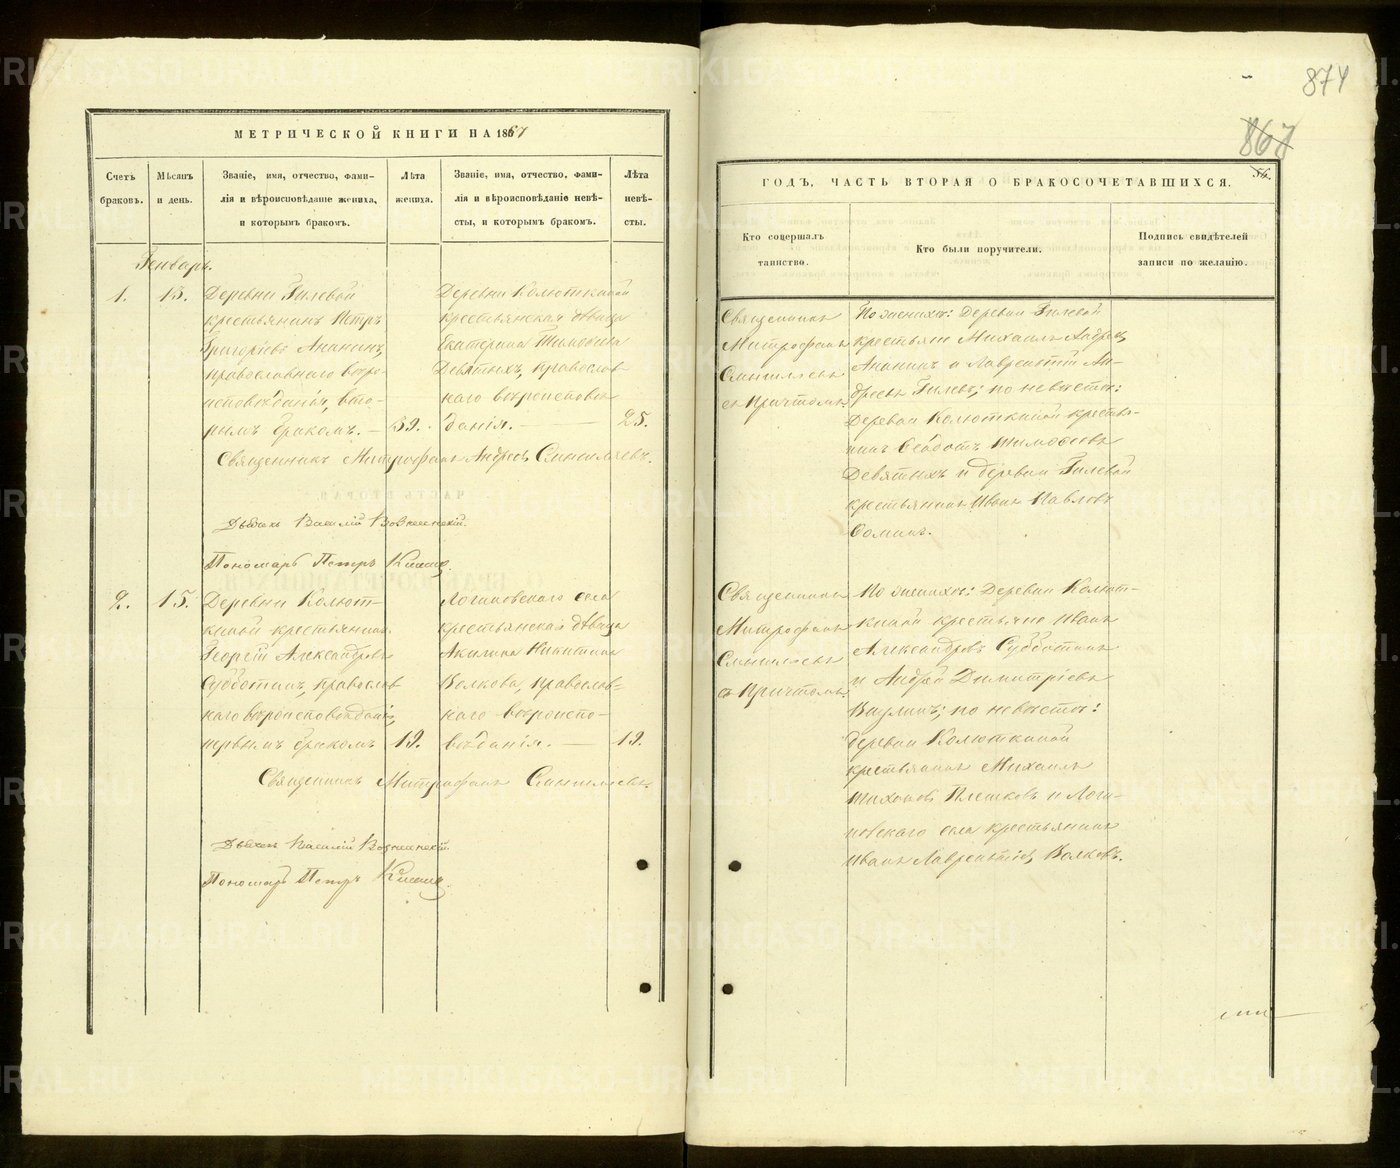 874
867
54.
МЕТРИЧЕСКОЙ КНИГИ НА 1867
Счетъ браковъ.
Мѣсяцъ и день.
Званіе, имя, отчество, фами-
лія и вѣроисповѣданіе жениха,
и которымъ бракомъ.
Лѣта жениха.
Званіе, имя, отчество, фами-
лія и вѣроисповѣданіе невѣ-
сты, и которымъ бракомъ.
Лѣта невѣ-
сты.
Генварь.
1. 13.
Деревни Гилевой
крестьянинъ Петръ
Григорьевъ Ананинъ,
православнаго вѣро-
исповѣданія, вто-
рымъ бракомъ. — 39.
Деревни Колюткиной
крестьянская дѣвица
Екатерина Тимофѣева
Девятыхъ, православ-
наго вѣроисповѣ-
данія. — 25.
Священникъ Митрофанъ Андреевъ
Дьячекъ Василій Вознесенскій.
Пономарь Петръ
2. 15.
Деревни Колют-
киной крестьянинъ
Георгій Александровъ
Субботинъ, православ-
наго вѣроисповѣданія,
первымъ бракомъ 19.
Логиновскаго села
крестьянская дѣвица
Акилина Никитина
Волкова, православ-
наго вѣроиспо-
вѣданія. — 19.
Священникъ Митрофанъ
Дьячекъ Василій Вознесенскій.
Пономарь Петръ
ГОДЪ, ЧАСТЬ ВТОРАЯ О БРАКОСОЧЕТАВШИХСЯ.
Кто совершалъ
таинство.
Кто были поручители.
Подпись свидѣтелей
записи по желанію.
Священникъ
Митрофанъ
съ Причтомъ.
По женихѣ: Деревни Гилевой
крестьяне Михаилъ Андреевъ
Ананинъ и Лаврентій Ан-
дреевъ Гилевъ; по невѣстѣ:
Деревни Колюткиной крестья-
нинъ Ѳедотъ Тимофѣевъ
Девятыхъ и деревни Гилевой
крестьянинъ Иванъ Павловъ
Священникъ
Митрофанъ
съ Причтомъ
По женихѣ: Деревни Колют-
киной крестьяне Иванъ
Александровъ Субботинъ
и Андрей Димитріевъ
по невѣстѣ:
деревни Колюткиной
крестьянинъ Михаилъ
Тихоновъ Плешковъ и Логи-
новскаго села крестьянинъ
Иванъ Лаврентьевъ Волковъ.
METRIKI.GASO-URAL.RU